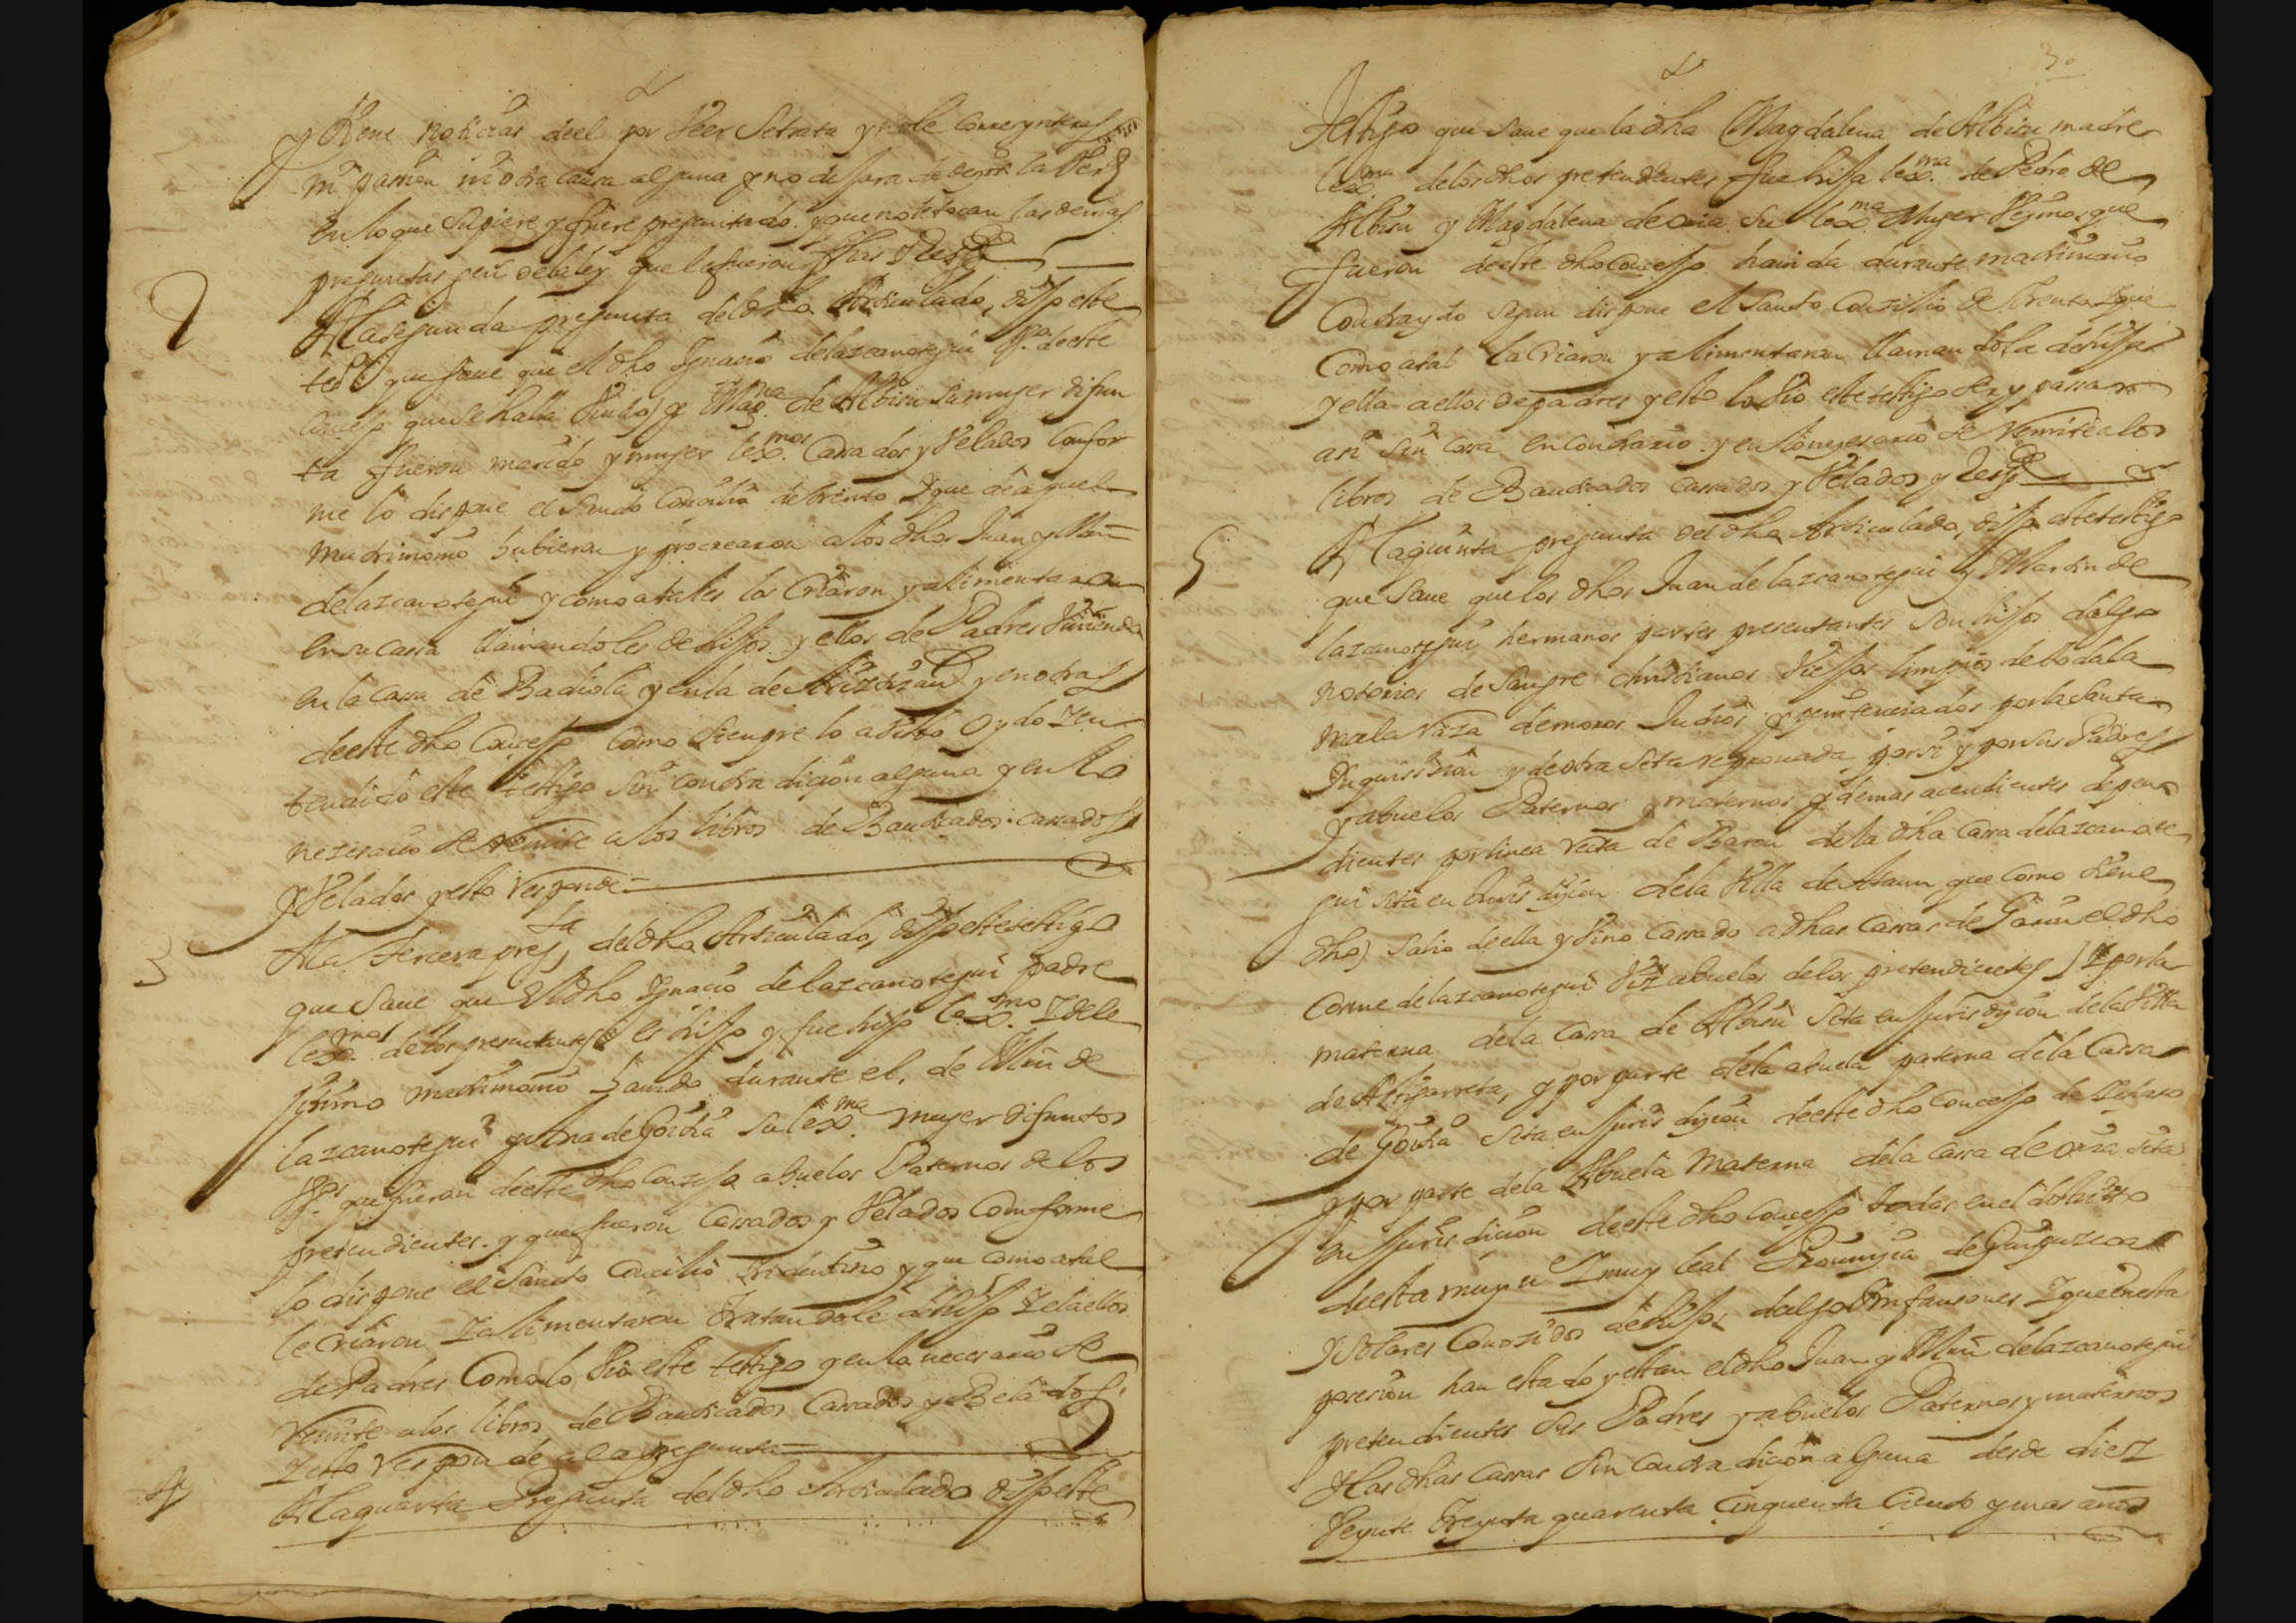 y tiene noticias deel por Veer Setrata y no le corre ynteres
ni passion ni otra causa alguna y no dejara de dezir la Verd
En lo que supiere y fuere preguntado. y que no le tocan las demas
preguntas gen. de la ley que le fueron fhas Resp.de
2 A la segunda pregunta del dho Articulado, dijo este
tes.o que save que el dho Ignacio de lazcanotegui Vz.o de este
Concejo que se halla Viudo y Mag.na de Albisu su muger difun
ta fueron marido y muger lex.mos Cassados y Velados Confor
me lo dispone el Santo Concilio de trento Y que de aquel
matrimonio hubieron y procrearon a los dhos Juan y Min
de lazcanotegui y como a tales los Criaron y alimentaron
en su Cassa llamandoles de hijos y ellos de Padres Viviendo
en la Cassa de Badiola y en la de y en otras
de este dho Concejo Como siempre lo a visto Oydo y en
tendido este testigo sin contradiçion alguna y en lo
nezesario se remite a los libros de Bauticados. cassados
y Velados y esto responde
3 A la tercera preg.ta del dho Articulado, dijo este testigo
que save que El dho Ignacio de lazcanotegui padre
lex.mo de los presentantes es hijo y fue hijo lex.mo Y de le
jitimo matrimonio havido durante el, de Min de
lazcanotegui y Ana de Goitia su lex.ma muger difuntos
Vz.os que fueron de este dho Conzejo abuelos Paternos de los
pretendientes. y que fueron Cassados y Velados Comforme
lo dispone el Santo Concilio tridentino y que como a tal
le Criaron Y alimentaron tratandole de hijo Y el a ellos
de Padres Como lo Vio este testigo y en lo necesario se
remite a los libros de Bauticados Cassados y Belados
Y esto responde a la pregunta
4 A la quarta Pregunta del dho Articulado dijo este
30
Testigo que save que la dha Magdalena de Albisu madre
lex.ma de los dhos pretendientes fue hija lex.ma de Pedro de
Albisu y Magdalena de oria su lex.ma Muger Vezinos que
fueron de este dho Concejo havida durante matrimonio
Contraydo segun dispone el Santo Conzilio de Trento Y que
Como a tal la Criaron y alimentaron llamandola de hija
y ella a ellos de padres y esto lo Vio este testigo ser y passar
asi sin cossa en contrario. y en lo nezesario se remite a los
libros de Bauticados Cassados y Velados y Resp.de
5 A la quinta pregunta del dho Articulado, dijo este testigo
que save que los dhos Juan de lazcanotegui y Martin de
lazcanotegui hermanos partes presentantes son hijos dalgo
notorios de Sangre christianos Viejos limpios de toda la
mala raza de moros Judios y penitenciados por la Santa
Inquisision y de otra Seta reprouada por si y por sus Padres
y abuelos Paternos y maternos y demas acendientes depen
dientes por linea recta de Baron de la dha Cassa de lazcanote
gui sita en Jurisdiçion de la Villa de Ataun que como tiene
dho) Salio de ella y Vino Cassado a dhas Cassas de el dho
Cosme de lazcanotegui Viz abuelos de los pretendientes) Y por la
materna de la Cassa de Albisu Sita en Jurisdiçion de la Villa
de Alçagarreta, y por parte de la abuela paterna de la Cassa
de Goitia Sita en Jurisdiçion de este dho Concejo de
y por parte de la Abuela Materna de la Cassa de oria sita
en Jurisdiçion de este dho Concejo todas en el distrito
de esta muy n. Y muy leal Prouinçia de Guipuzcoa
Y Solares Conozidos de hijos dalgo Ynfançones Y que En esta
posesion han estado y estan el dho Juan y Min de lazcanotegui
pretendientes sus Padres y abuelos Paternos y maternos
y las dhas Cassas Sin Contradiçion alguna desde diez
Veynte treynta quarenta Cinquenta Ciento y mas años